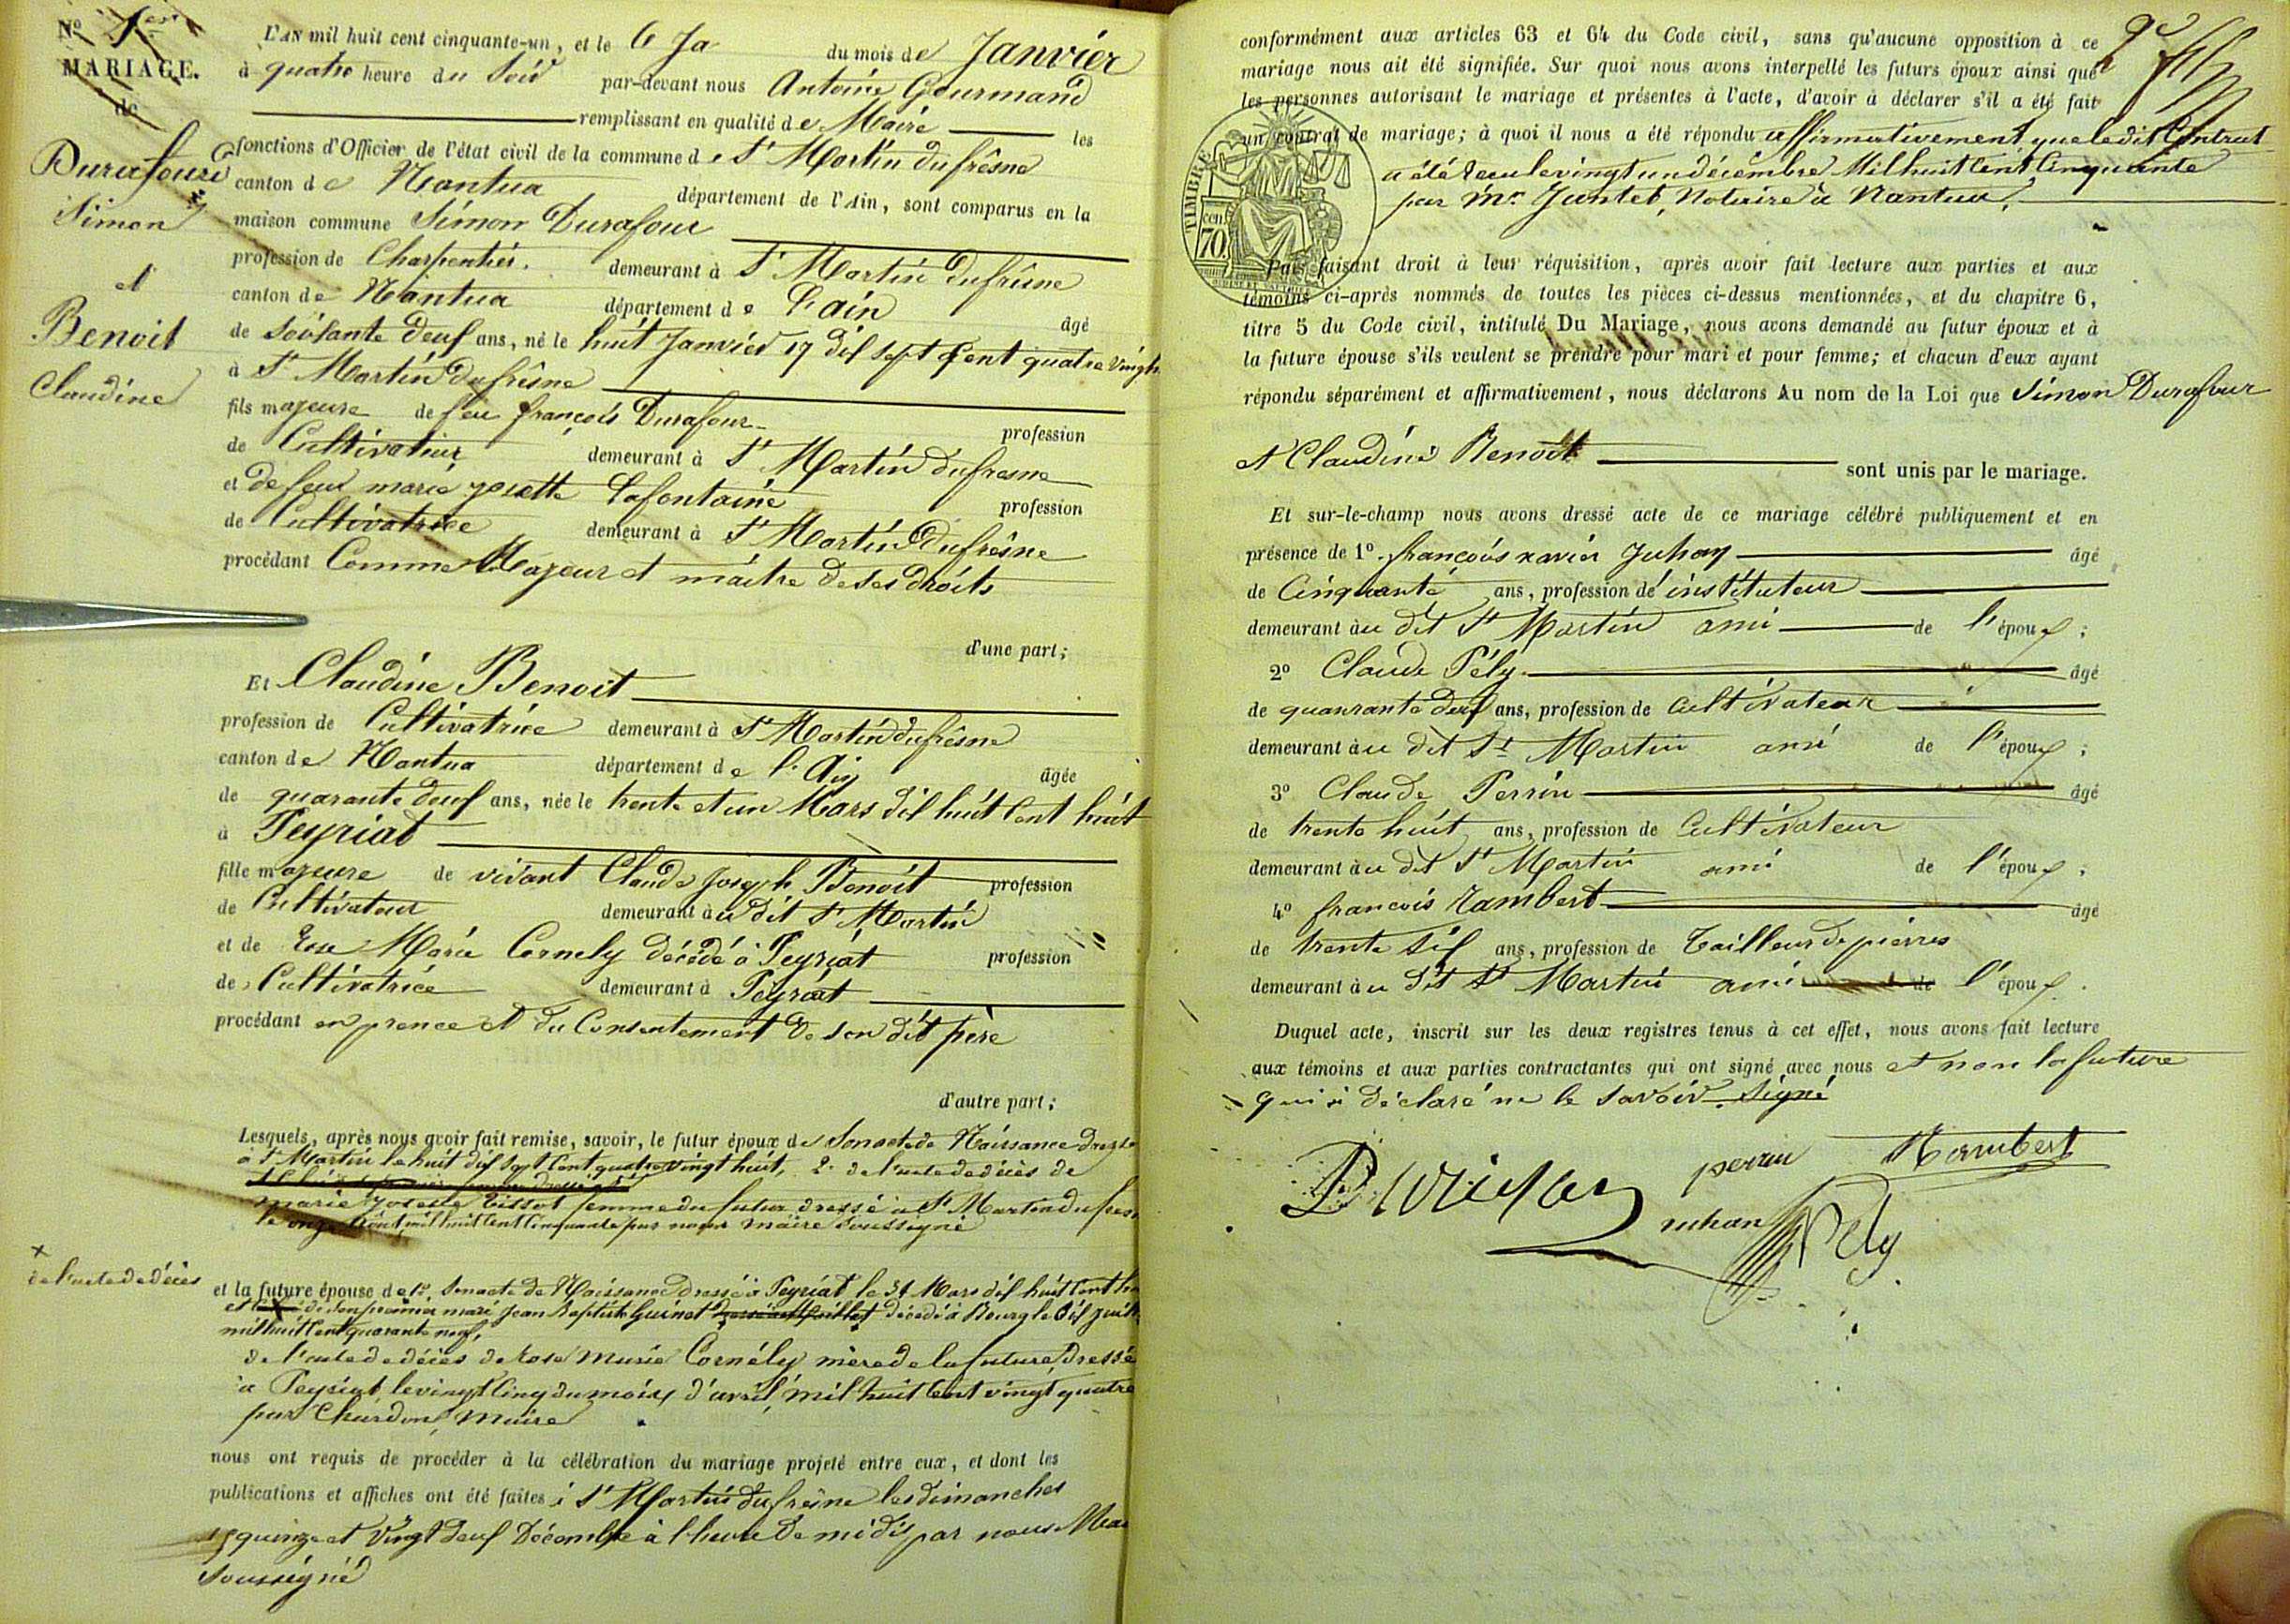 Nº 1er
MARIAGE.
de
Durafour
Simon
et
Benoit
Claudine
L'AN mil huit cent cinquante-un, et le 6 Ja du mois de Janvier
à quatre heure du Soir par-devant nous Antoine Gourmand
remplissant en qualité de Maire les
fonctions d'Officier de l'état civil de la commune de St Martin du frêsne
canton de Nantua département de l'Ain, sont comparus en la
maison commune Simon Durafour
profession de Charpentier. demeurant à St Martin du frêsne
canton de Nantua département de L'ain âgé
de Soisante deux ans, né le huit Janvier 17 dix sept Cent quatre vingt
à St Martin du frêsne
fils majeure de feu françois Durafour
profession
de Cultivateur demeurant à St Martin du fresne
et de feue marie josette Lafontaine profession
de Cultivatrice demeurant à St Martin du frêsne
procédant Comme Majeur et maitre de ses droits
d'une part;
Et Claudine Benoit
profession de Cultivatrice demeurant à St Martin du frêsne
canton de Nantua département de l'Ain âgée
de quarante deux ans, née le trente et un Mars dix huit Cent huit
à Peyriat
fille majeure de vivant Claude Joseph Benoit profession
de Cultivateur demeurant àu dit St Martin
et de Rose Marie Cornely décédé à Peyriat profession
de Cultivatrice demeurant à Peyriat
procédant en prence et du Consentement de son dit père
d'autre part;
Lesquels, après nous avoir fait remise, savoir, le futur époux de Son acte de Naissance dressé
à St Martin le huit dix Sept Cent quatre vingt huit, 2º de l'acte de décès de
marie Josette Tissot femme du futur dressé à St Martin du fresn
le onze Août mil huit Cent Cinquante par nous maire Soussigné
x
de l'acte de décès
et la future épouse de 1º. Son acte de Naissance dressé à Peyriat le 31 Mars dix huit Cent hu
et x de son premier mari Jean Baptiste Guinet décédé à Bourg le 6 dix juill
mil huit Cent quarante neuf,
de l'acte de décès de Rose Marie Cornély mère de la future, dressé
à Peyriat le vingt Cinq du mois d'avril, mil huit Cent vingt quatre
par Chardon, Maire
nous ont requis de procéder à la célébration du mariage projeté entre eux, et dont les
publications et affiches ont été faites à St Martin du frêsne les dimanches
15 quinze et Vingt deux Décembre à l'heure de midi par nous Mai
Soussigné
conformément aux articles 63 et 64 du Code civil, sans qu'aucune opposition à ce
mariage nous ait été signifiée. Sur quoi nous avons interpellé les futurs époux ainsi que
les personnes autorisant le mariage et présentes à l'acte, d'avoir à déclarer s'il a été fait
un contrat de mariage; à quoi il nous a été répondu affirmativement que le dit Contrat
a été Reçu le vingt un décembre Mil huit Cent Cinquante
par Me. Jantet, Notaire à Nantua.
TIMBRE
cen. 70.
Puis faisant droit à leur réquisition, après avoir fait lecture aux parties et aux
témoins ci-après nommés de toutes les pièces ci-dessus mentionnées, et du chapitre 6,
titre 5 du Code civil, intitulé Du Mariage, nous avons demandé au futur époux et à
la future épouse s'ils veulent se prendre pour mari et pour femme; et chacun d'eux ayant
répondu séparément et affirmativement, nous déclarons Au nom de la Loi que Simon Durafour
et Claudine Benoit sont unis par le mariage.
Et sur-le-champ nous avons dressé acte de ce mariage célébré publiquement et en
présence de 1º. françois xavier Juhan âgé
de Cinquante ans, profession de instituteur
demeurant àu dit St Martin ami de l'époux;
2º Claude Pély âgé
de quanrante deux ans, profession de Cultivateur
demeurant àu dit St Martin ami de l'époux;
3º Claude Perrin âgé
de trente huit ans, profession de Cultivateur
demeurant àu dit St Martin ami de l'époux;
4º francois Rambert âgé
de trente Six ans, profession de Tailleur de pierres
demeurant àu dit St Martin ami de l'époux.
Duquel acte, inscrit sur les deux registres tenus à cet effet, nous avons fait lecture
aux témoins et aux parties contractantes qui ont signé avec nous et non la future
qui à déclaré ne le savoir. Signé
perrin Rambert
Durafour
juhan Pely